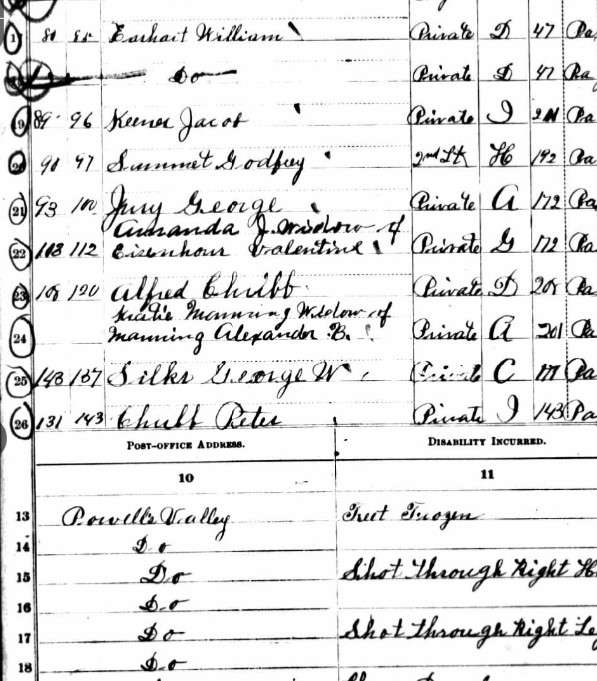 80 85 Earhart William Private D 47 Pa
Do Private D 47 Pa
19 89 96 Keener Jacob Private I Pa
20 90 97 Summet Godfrey 2nd Lt H 192 Pa
21 93 100 Jury George Private A 172 Pa
Amanda J. Widow of
22 103 112 Eisenhour Valentine Private G 172 Pa
23 108 120 Alfred Chubb Private D 208 Pa
Manning Widow of
24 Manning Alexander B. Private A 201 Pa
25 143 157 Silks George W Private C Pa
26 131 143 Chubb Peter Private I 143 Pa
POST-OFFICE ADDRESS. DISABILITY INCURRED.
10 11
13 Powell's Valley Feet Frozen
14 Do
15 Do Shot through Right H
16 Do
17 Do Shot through Right Le
18 Do